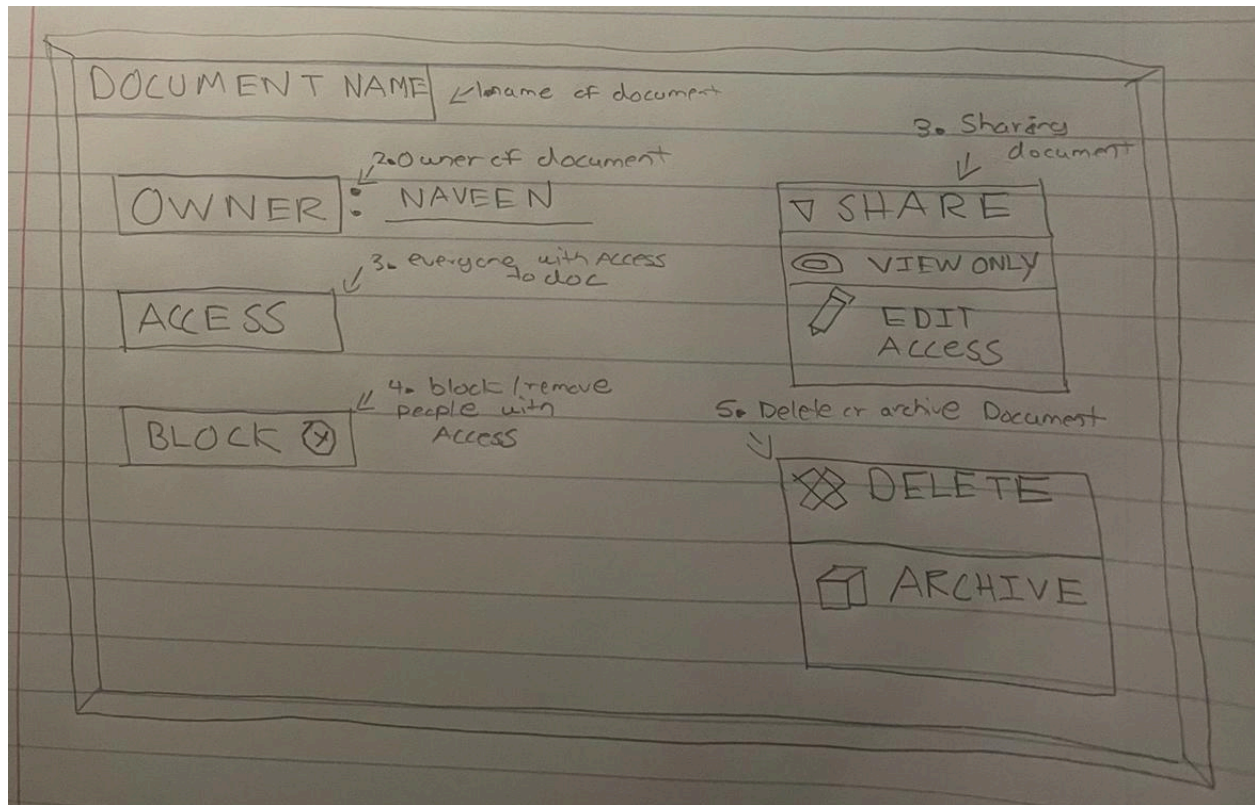 DOCUMENT NAME
1. name of document
2. Owner of document
OWNER : NAVEEN
3. everyone with Access
to doc
ACCESS
4. block / remove
people with
Access
BLOCK
3. Sharing
document
SHARE
VIEW ONLY
EDIT
Access
5. Delete or archive Document
DELETE
ARCHIVE